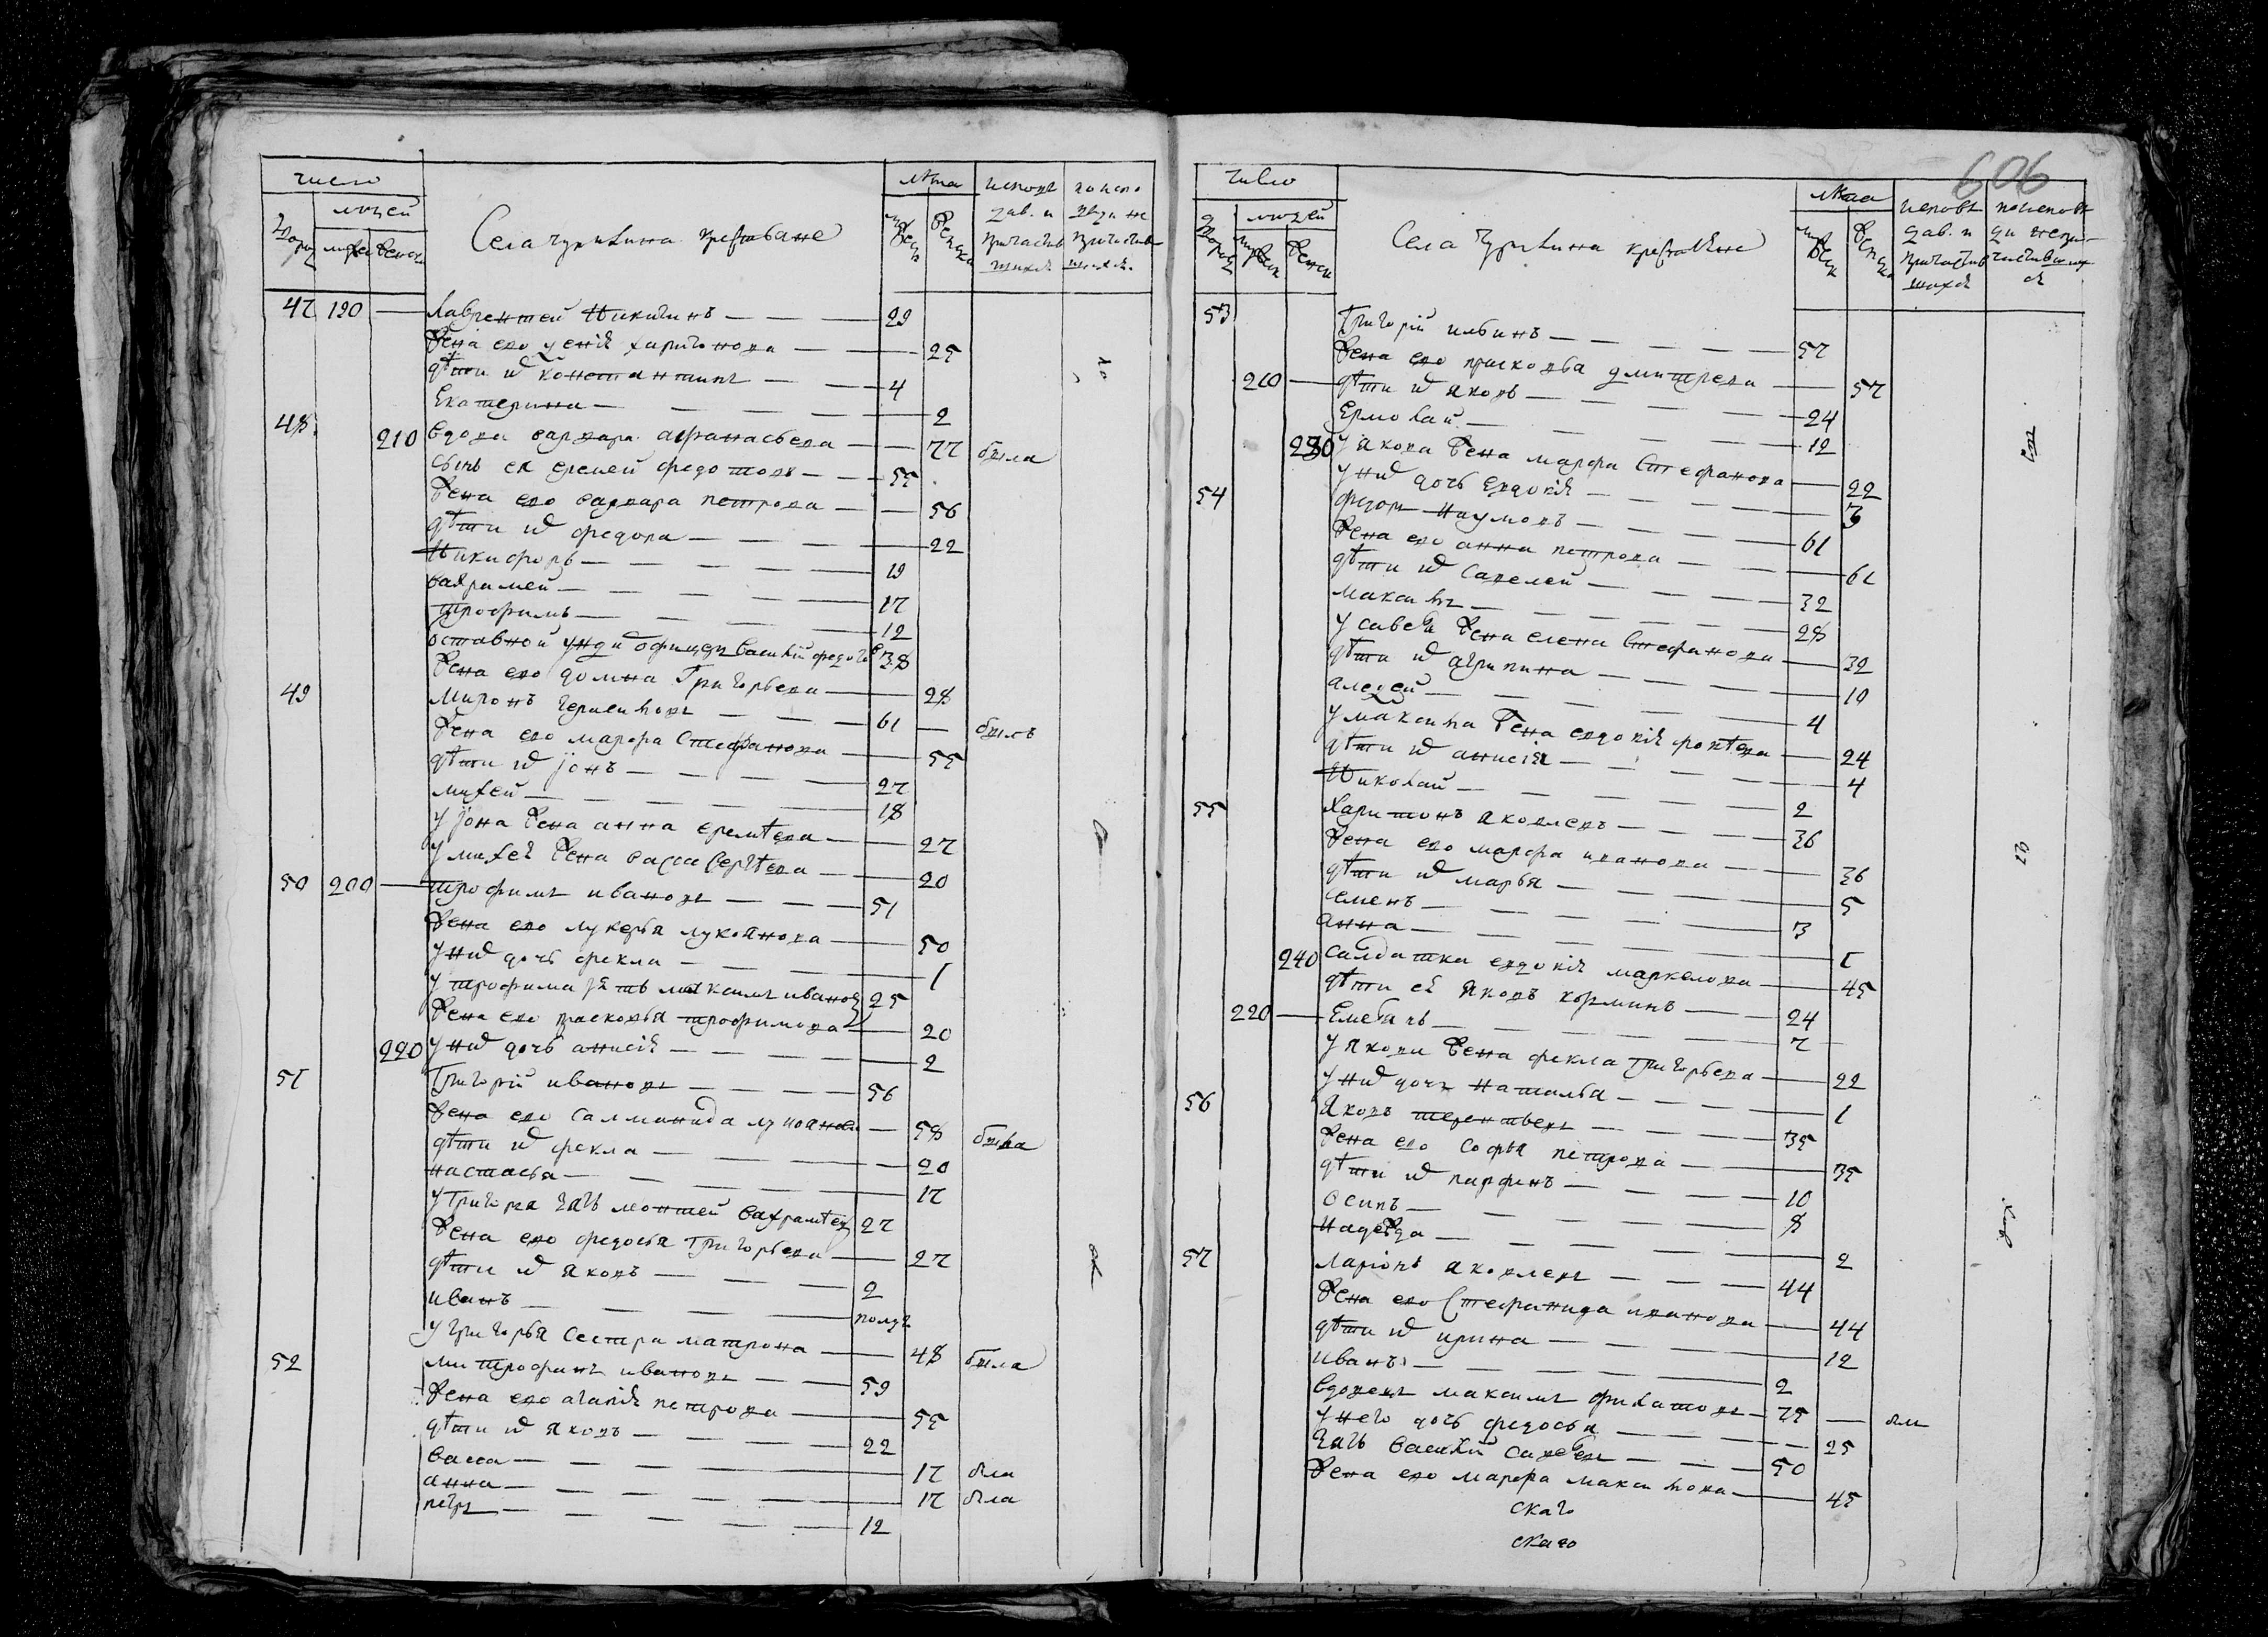 число
людей
дворов
мужск
женск
Села чурикина крестьяне
лѣта
мужеск
женска
исповѣ
дав. и
причастив
шихся
47 190 — Лаврентей Никитинъ — 29
Жена его Ѯенія харитонова — 25
дѣти их константинъ — 4
Екатерина — 2
48 210 вдова варвара афанасьева — 77 была
сынъ ея еремей федотовъ — 55
Жена его варвара петрова — 56
дѣти их федора — 22
Никифоръ — 19
вахрамей — 17
трофимъ — 12
оставной ундир офицер Василій федотов 38
Жена его домна Григорьева — 28
49 миронъ герасимовъ — 61 — былъ
Жена его марфа Стефанова — 55
дѣти их іонъ — 27
михей — 18
у іона Жена анна еремѣева — 27
у михея Жена васса Сергѣева — 20
50 200 — трофимъ ивановъ — 51
Жена его лукерья лукоянова — 50
у них дочь фекла — 1
у трофима зять максимъ иванов 25
Жена его прасковья трофимова — 20
220 у них дочь анисія — 2
51 Григорій ивановъ — 56
Жена его саламанида лукоянов — 58 была
дѣти их фекла — 20
настасья — 17
у Григорья зять леонтей вахрамѣев 27
Жена его федосья Григорьева — 27
дѣти их яковъ — 2
иванъ — полуг
у григорья сестра матрона — 48 была
52 митрофанъ ивановъ — 59
Жена его агапія петрова — 55
дѣти их яковъ — 22
васса — 17 бла
анна — 17 бла
петръ — 12
606
число
людей
дворов
мужск
женск
Села Чурикина крестьяне
лѣта
мужеск
женска
исповѣ
дав. и
причастив
шихся
поисповѣ
ди непри-
частивших
ся
53 Григорій ильинъ — 57
Жена его прасковья дмитрева — 57
210 — дѣти их яковъ — 24
Ермолай — 12
230 у якова Жена марфа Стефанова — 22
у них дочь евдокія — 3
54 федоръ Наумовъ — 61
Жена его анна петрова — 61
дѣти их савелей — 32
максимъ — 28
у савелья Жена елена Стефанова — 32
дѣти их агрипина — 10
алеѯей — 4
у максима Жена евдокія фокѣева — 24
дѣти их анисія — 4
Николай — 2
55 Харитонъ яковлевъ — 36
Жена его марфа иванова — 36
дѣти их марья — 5
семенъ — 3
анна — 1
240 салдатка евдокія маркелова — 45
дѣти ея яковъ корминъ — 24
220 — Емельянъ — 7
у якова Жена фекла Григорьева — 22
у них дочь наталья — 1
56 яковъ терентьевъ — 35
Жена его софья петрова — 35
дѣти их парфенъ — 10
осипъ — 8
надежда — 2
57 ларіонъ яковлевъ — 44
Жена его Стефанида иванова — 44
дѣти их ирина — 12
иванъ — 2
вдовецъ максимъ филатовъ — 75 — был
у него дочь федосья — 25
зять василій савельев — 50
Жена его марфа максимова — 45
скаго
скаго